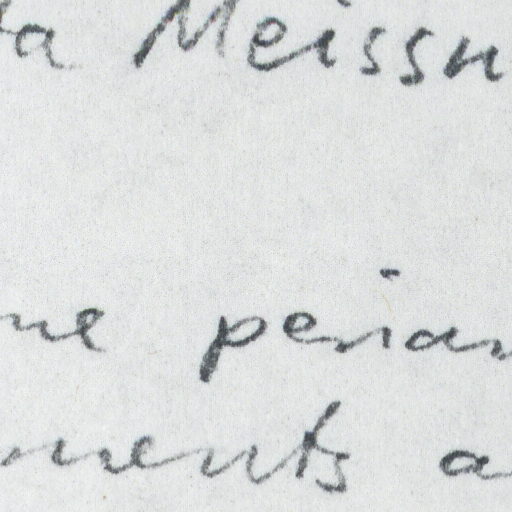 ta Meissn
me perian
ments a